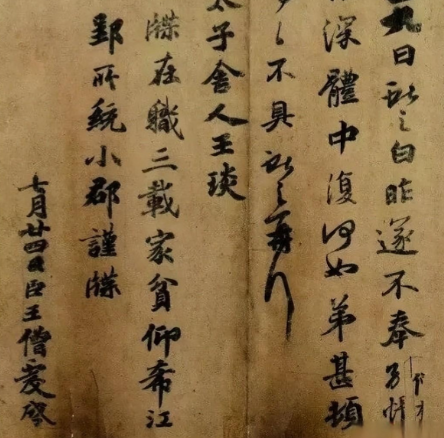 九日獻之白昨遂不奉別悵
深體中復何如弟甚頓
匆不具獻之再拜
太子舍人王琰
牒在職三載家貧仰希江
郢所統小郡謹牒
七月廿四日臣王僧虔啓